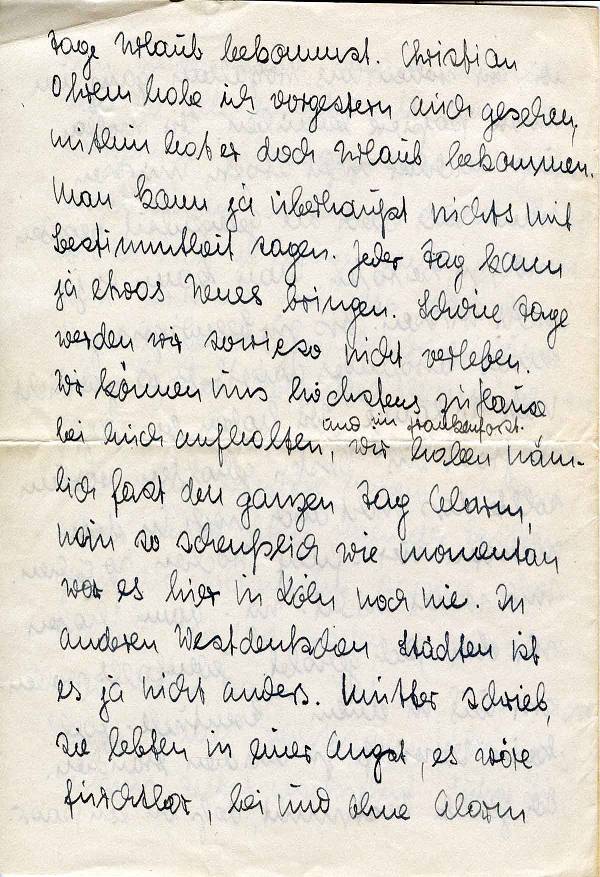 Tage Urlaub bekommst. Christian
Ohrem habe ich vorgestern auch gesehen,
mithin hat er doch Urlaub bekommen.
Man kann ja überhaupt nichts mit
Bestimmtheit sagen. Jeder Tag kann
ja etwas Neues bringen. Schöne Tage
werden wir sowieso nicht verleben.
Wir können uns höchstens zu Hause
und im Frankenforst
bei Euch aufhalten, wir haben näm-
lich fast den ganzen Tag Alarm,
nein so scheußlich wie momentan
war es hier in Köln noch nie. In
anderen Westdeutschen Städten ist
es ja nicht anders. Mutter schrieb,
sie lebten in einer Angst, es wäre
furchtbar, bei und ohne Alarm